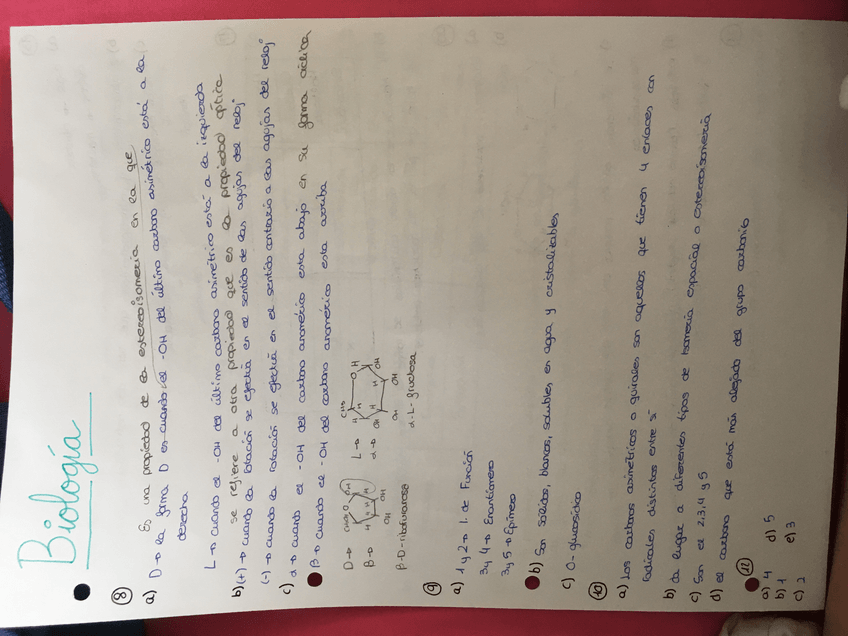 Biología
8
Es una propiedad de la estereoisomería en la que
a) D → la forma D es cuando el -OH del último carbono asimétrico está a la
derecha
L → cuando el -OH del último carbono asimétrico está a la izquierda
se refiere a otra propiedad que es la propiedad óptica
b) (+) → cuando la rotación se efectúa en el sentido de las agujas del reloj
(-) → cuando la rotación se efectúa en el sentido contrario a las agujas del reloj
c) α → cuando el -OH del carbono anomérico esta abajo en su forma cíclica
β → cuando el -OH del carbono anomérico esta arriba
D →
β →
L →
α →
β-D-ribofuranosa
α-L-glucosa
9
a) 1 y 2 → I. de Función
3 y 4 → Enantiómero
3 y 5 → Epímero
b) Son solidos, blancos, solubles en agua y cristalizables
c) O-glucosídico
10
a) Los carbonos asimétricos o quirales son aquellos que tienen 4 enlaces con
radicales distintos entre sí
b) da lugar a diferentes tipos de isomería espacial o estereoisomería
c) Son el 2, 3, 4 y 5
d) el carbono que está más alejado del grupo carbonilo
12
a) 4
b) 1
c) 2
d) 5
e) 3